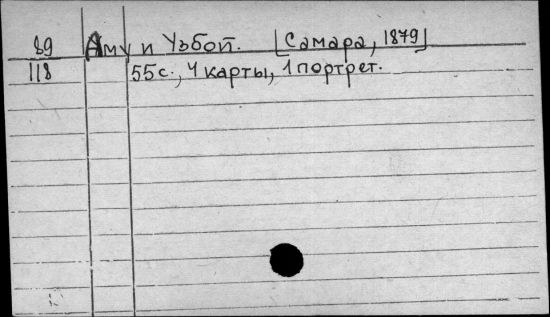 89 Аму и Узбой. [Самара, 1879]
118 55 с., 4 карты, 1 портрет.